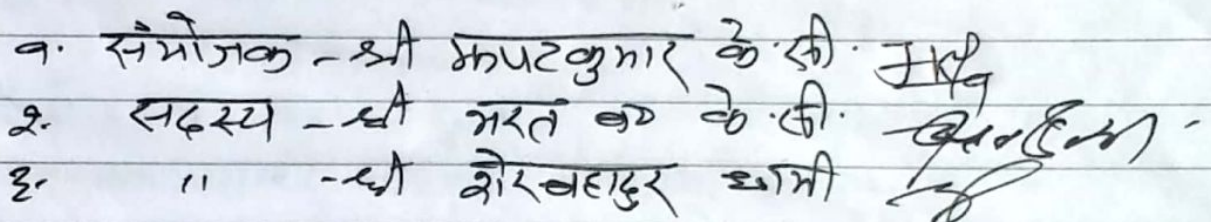 १. संयोजक - श्री झपटकुमार के.सी.
२. सदस्य - श्री भरत ब० के.सी.
३. " - श्री शेरबहादुर धामी